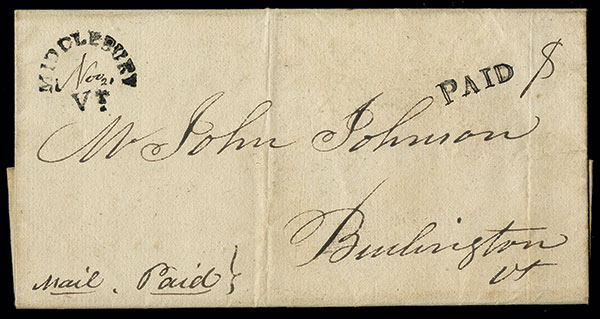 MIDDLEBURY
Nov.
VT.
PAID
Mr John Johnson
Burlington
vt
Mail. Paid